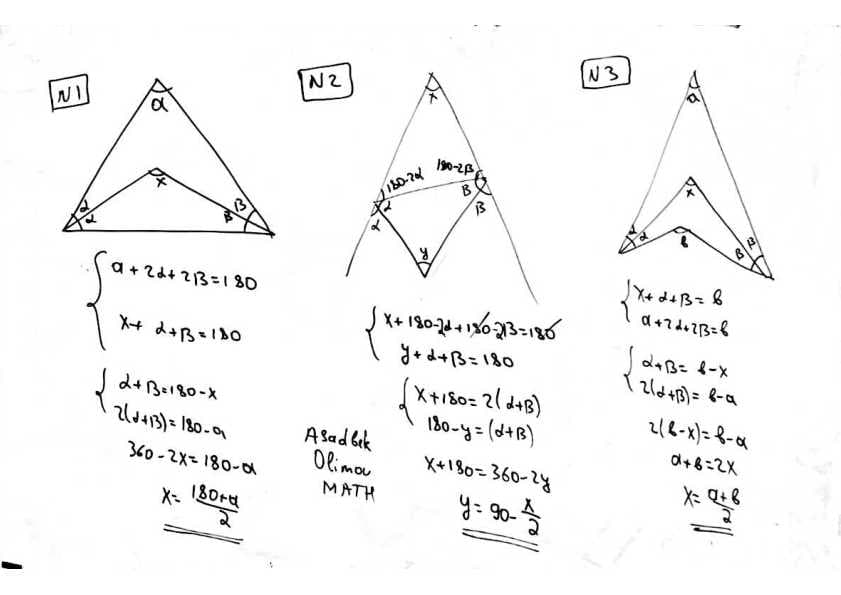 N1
a
x
α
α
β
β
a+2α+2β=180
x+ α+β=180
α+β=180-x
2(α+β)=180-a
360-2x=180-a
x= 180+a/2
N2
x
180-2α
180-2β
α
α
β
β
y
x+180-2α+180-2β=180
y+α+β=180
x+180=2(α+β)
180-y=(α+β)
x+180=360-2y
y=90-x/2
Asadbek
Olimov
MATH
N3
a
x
α
α
b
β
β
x+α+β=b
a+2α+2β=b
α+β=b-x
2(α+β)=b-a
2(b-x)=b-a
a+b=2x
x=a+b/2